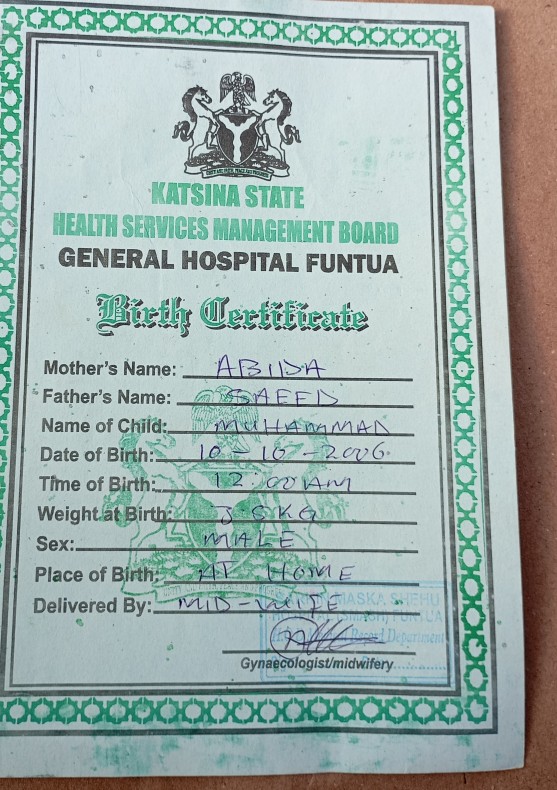 KATSINA STATE
HEALTH SERVICES MANAGEMENT BOARD
GENERAL HOSPITAL FUNTUA
Birth Certificate
Mother's Name: ABIIDA
Father's Name: SAEED
Name of Child: MUHAMMAD
Date of Birth: 10-10-2006
Time of Birth: 12.00AM
Weight at Birth: KG
Sex: MALE
Place of Birth: AT HOME
Delivered By: MID-WIFE
MASKA SHEHU
FUNTUA
Record Department
Gynaecologist/midwifery